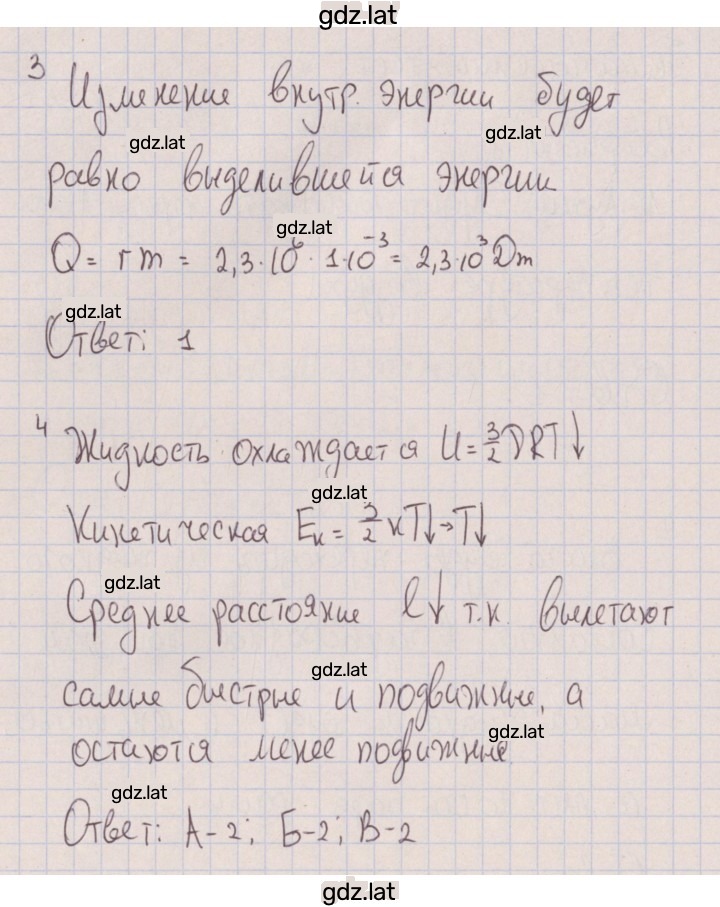 gdz.lat
3 Изменение внутр. энергии будет
gdz.lat
gdz.lat
равно выделившейся энергии
gdz.lat
Q = rm = 2,3·10⁶ · 1·10⁻³ = 2,3·10³ Дж
gdz.lat
Ответ: 1
4 Жидкость охлаждается U = 3/2 νRT↓
gdz.lat
Кинетическая Eк = 3/2 кT↓→T↓
gdz.lat
Среднее расстояние l↓ т.к. вылетают
gdz.lat
самые быстрые и подвижные, а
gdz.lat
остаются менее подвижные
gdz.lat
Ответ: А-2; Б-2; В-2
gdz.lat